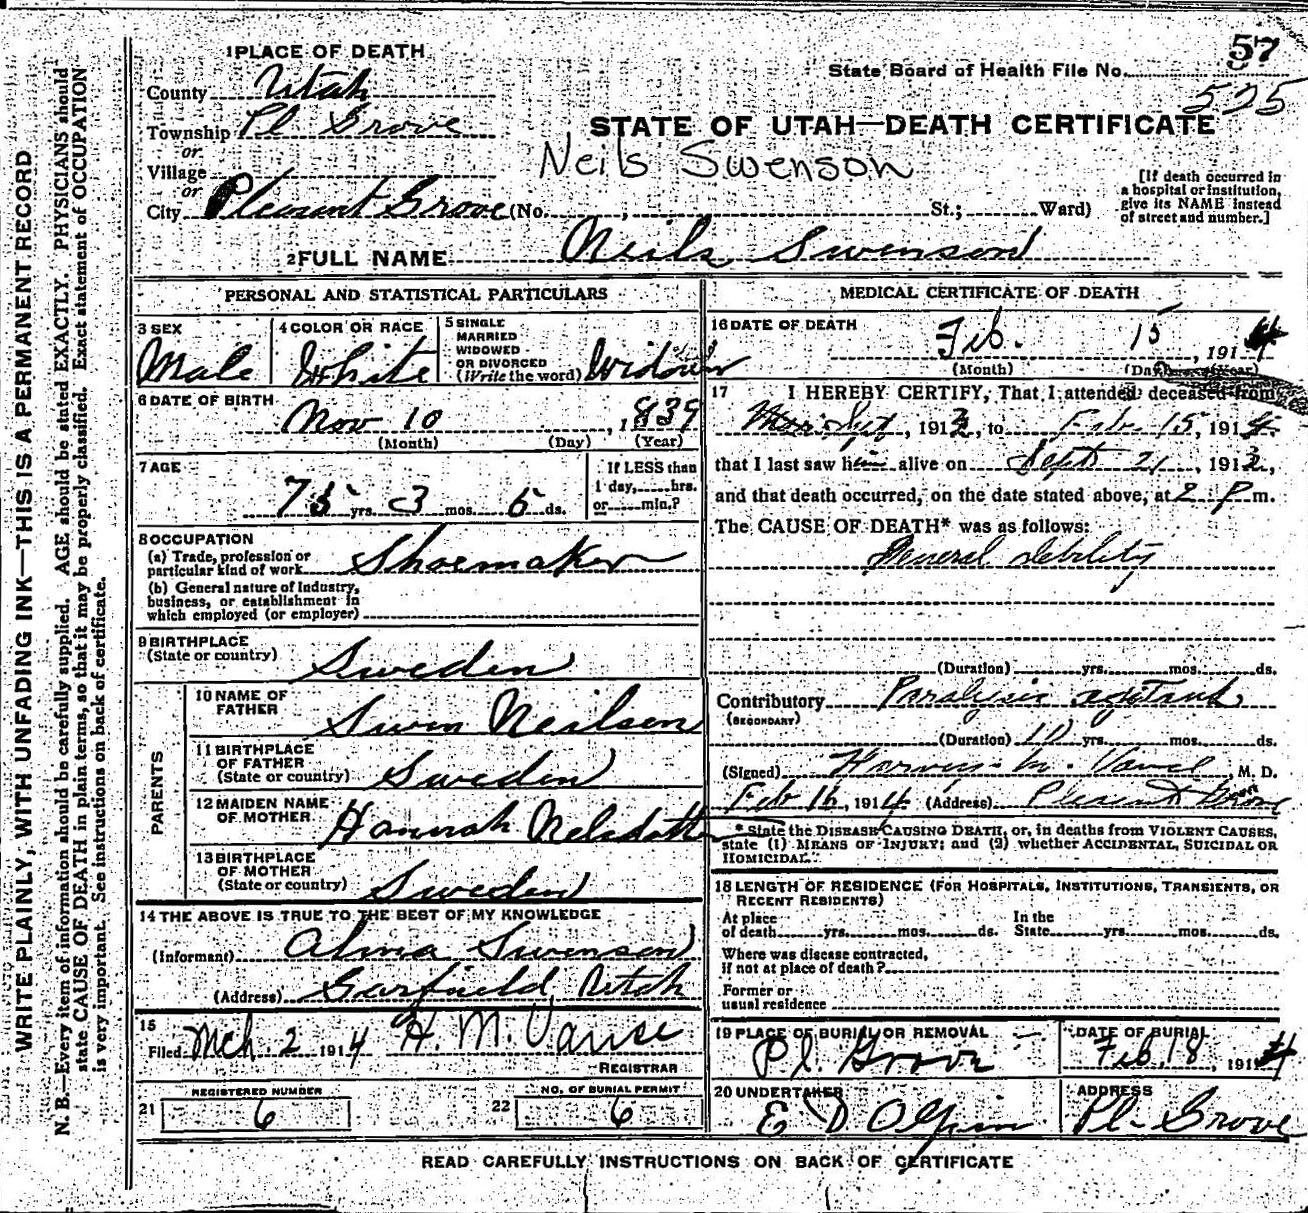 57
1 PLACE OF DEATH
State Board of Health File No.
525
County Utah
Township Pl Grove
or
STATE OF UTAH—DEATH CERTIFICATE
Neils Swenson
Village
or
City Pleasant Grove (No. , St.; Ward)
[If death occurred in a hospital or institution, give its NAME instead of street and number.]
2 FULL NAME Neils Swenson
PERSONAL AND STATISTICAL PARTICULARS
3 SEX
Male
4 COLOR OR RACE
White
5 SINGLE
MARRIED
WIDOWED
OR DIVORCED
(Write the word) Widower
6 DATE OF BIRTH
Nov 10, 1839
(Month) (Day) (Year)
7 AGE
75 yrs. 3 mos. 5 ds.
If LESS than
1 day, hrs.
or min.?
8 OCCUPATION
(a) Trade, profession or
particular kind of work Shoemaker
(b) General nature of Industry,
business, or establishment in
which employed (or employer)
9 BIRTHPLACE
(State or country) Sweden
PARENTS
10 NAME OF
FATHER Swen Neilsen
11 BIRTHPLACE
OF FATHER
(State or country) Sweden
12 MAIDEN NAME
OF MOTHER Hannah Nelsdotter
13 BIRTHPLACE
OF MOTHER
(State or country) Sweden
14 THE ABOVE IS TRUE TO THE BEST OF MY KNOWLEDGE
(Informant) Alma Swenson
(Address) Garfield, Utah
15
Filed Mch. 2 1914 H. M. Vause
REGISTRAR
REGISTERED NUMBER
21 6
NO. OF BURIAL PERMIT
22 6
MEDICAL CERTIFICATE OF DEATH
16 DATE OF DEATH
Feb. 15, 1914
(Month) (Day) (Year)
17 I HEREBY CERTIFY, That I attended deceased from
Sept, 1913, to Feb. 15, 1914.
that I last saw him alive on Sept 21, 1913,
and that death occurred, on the date stated above, at 2 P m.
The CAUSE OF DEATH* was as follows:
General debility
(Duration) yrs. mos. ds.
Contributory Paralysis agitans
(SECONDARY)
(Duration) 10 yrs. mos. ds.
(Signed) M. D.
Feb 16, 1914 (Address) Pleasant Grove
* State the DISEASE CAUSING DEATH, or, in deaths from VIOLENT CAUSES,
state (1) MEANS OF INJURY; and (2) whether ACCIDENTAL, SUICIDAL OR
HOMICIDAL.
18 LENGTH OF RESIDENCE (FOR HOSPITALS, INSTITUTIONS, TRANSIENTS, OR
RECENT RESIDENTS)
At place
of death yrs. mos. ds.
In the
State yrs. mos. ds.
Where was disease contracted,
if not at place of death?
Former or
usual residence
19 PLACE OF BURIAL OR REMOVAL
Pl. Grove
DATE OF BURIAL
Feb 18, 1914
20 UNDERTAKER
E D Olpin
ADDRESS
Pl- Grove
READ CAREFULLY INSTRUCTIONS ON BACK OF CERTIFICATE
WRITE PLAINLY, WITH UNFADING INK—THIS IS A PERMANENT RECORD
N. B.—Every item of information should be carefully supplied. AGE should be stated EXACTLY. PHYSICIANS should
state CAUSE OF DEATH in plain terms, so that it may be properly classified. Exact statement of OCCUPATION
is very important. See instructions on back of certificate.